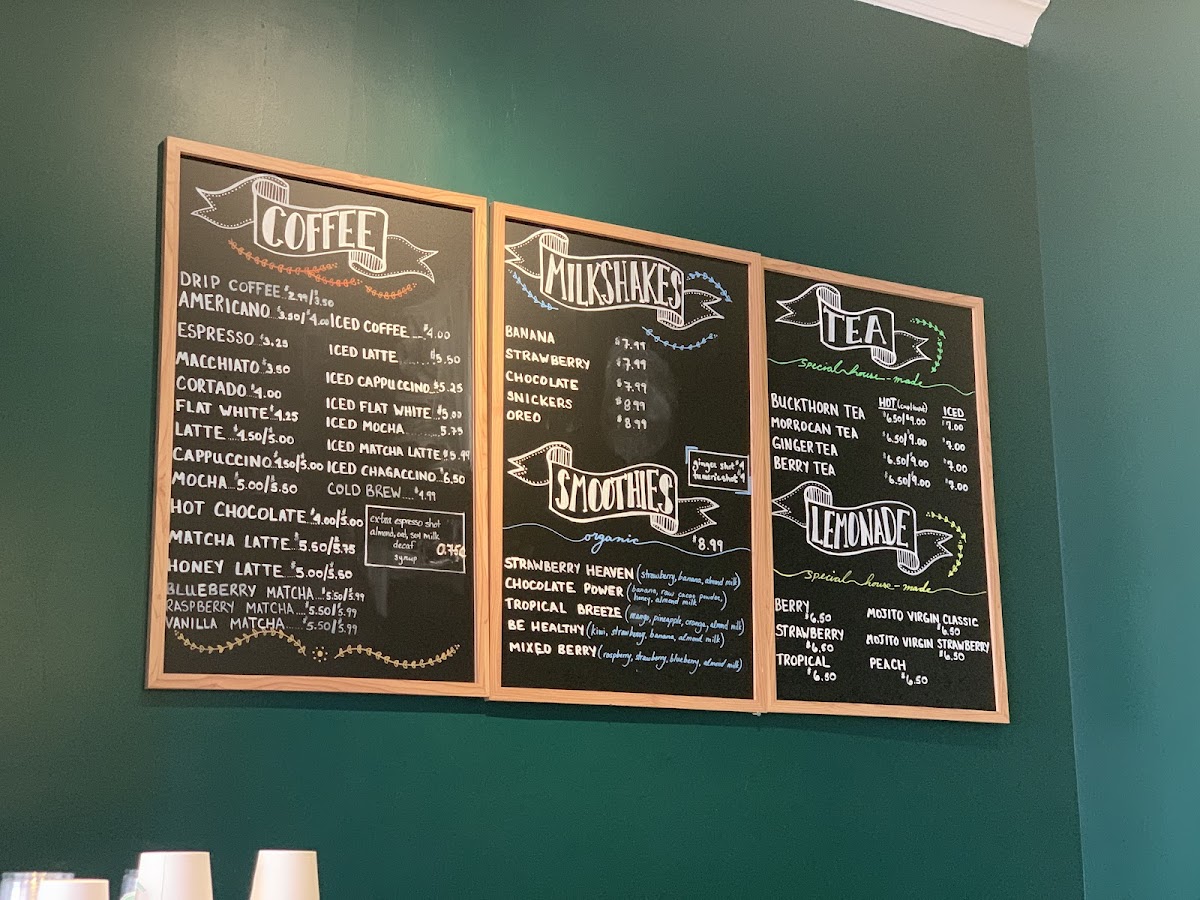 COFFEE
DRIP COFFEE $2.99/$3.50
AMERICANO...$3.50/$4.00
ESPRESSO $3.25
MACCHIATO $3.50
CORTADO $4.00
FLAT WHITE $4.25
LATTE...$4.50/$5.00
CAPPUCCINO $4.50/$5.00
MOCHA...$5.00/$5.50
HOT CHOCOLATE $4.00/$5.00
MATCHA LATTE...$5.50/$5.75
HONEY LATTE...$5.00/$5.50
BLUEBERRY MATCHA...$5.50/$5.99
RASPBERRY MATCHA....$5.50/$5.99
VANILLA MATCHA.....$5.50/$5.99
ICED COFFEE...$4.00
ICED LATTE.......$5.50
ICED CAPPUCCINO $5.25
ICED FLAT WHITE $5.00
ICED MOCHA.........5.75
ICED MATCHA LATTE $5.99
ICED CHAGACCINO $6.50
COLD BREW....$4.99
extra espresso shot
almond, oat, soy milk
decaf
syrup
0.75¢
MILKSHAKES
BANANA $7.99
STRAWBERRY $7.99
CHOCOLATE $7.99
SNICKERS $8.99
OREO $8.99
ginger shot $4
tumeric shot $4
SMOOTHIES
organic $8.99
STRAWBERRY HEAVEN (strawberry, banana, almond milk)
CHOCOLATE POWER (banana, raw cacao powder,
honey, almond milk)
TROPICAL BREEZE (mango, pineapple, orange, almond milk)
BE HEALTHY (kiwi, strawberry, banana, almond milk)
MIXED BERRY (raspberry, strawberry, blueberry, almond milk)
TEA
special house-made
HOT ICED
BUCKTHORN TEA $6.50/$9.00 $7.00
MORROCAN TEA $6.50/$9.00 $7.00
GINGER TEA $6.50/$9.00 $7.00
BERRY TEA $6.50/$9.00 $7.00
LEMONADE
special house-made
BERRY
$6.50
STRAWBERRY
$6.50
TROPICAL
$6.50
MOJITO VIRGIN CLASSIC
$6.50
MOJITO VIRGIN STRAWBERRY
$6.50
PEACH
$6.50